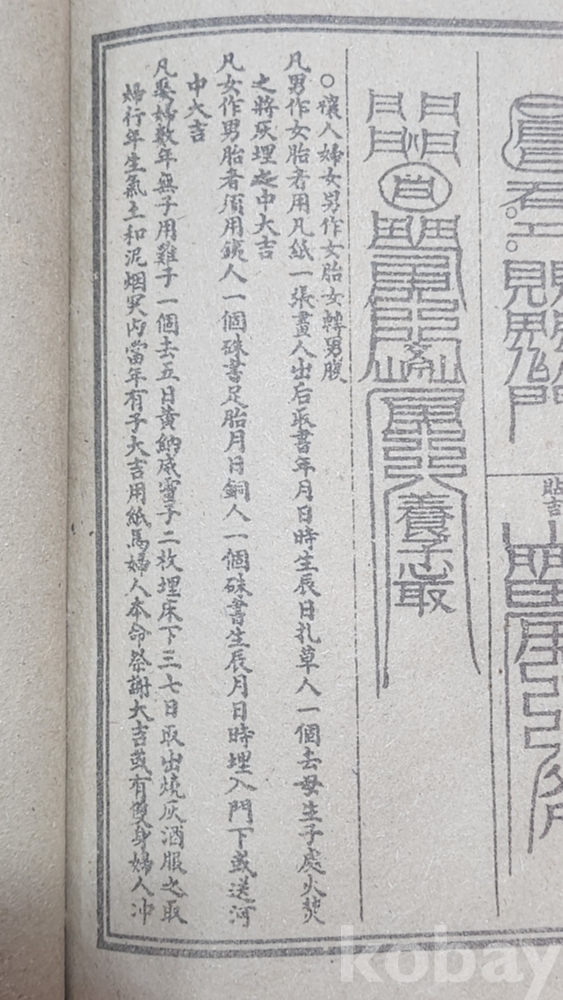 貼吉
養子㤙取
○禳人婦女男作女胎女轉男腹
凡男作女胎者用凡紙一張畫人出后取書年月日時生辰日扎草人一個去母生子處火焚
之將灰埋之中大吉
凡女作男胎者須用錢人一個硃書足胎月日銅人一個硃書生辰月日時埋入門下或送河
中大吉
凡娶婦数年無子用雞子一個去五日黄納威灵子二枚埋床下三七日取出燒灰酒服之取
婦行年生氣土和泥烟穴内當年有子大吉用紙馬婦人本命祭謝大吉或有雙身婦人冲
kobay